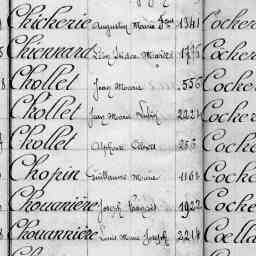 Chickerie Augustin Marie Fois 1341 Cocker
Chiennard Léon Isidore Marie 1775 Cocker
Chollet Jean Marie 556 Cocker
Chollet Jean Marie Lubin 2221 Cocker
Chollet Alphonse Albert 256 Cocker
Chopin Guillaume Marie 1161 Cocker
Chouanière Joseph François 1922 Cocke
Chouannière Louis Marie Joseph 2214 Coëlla